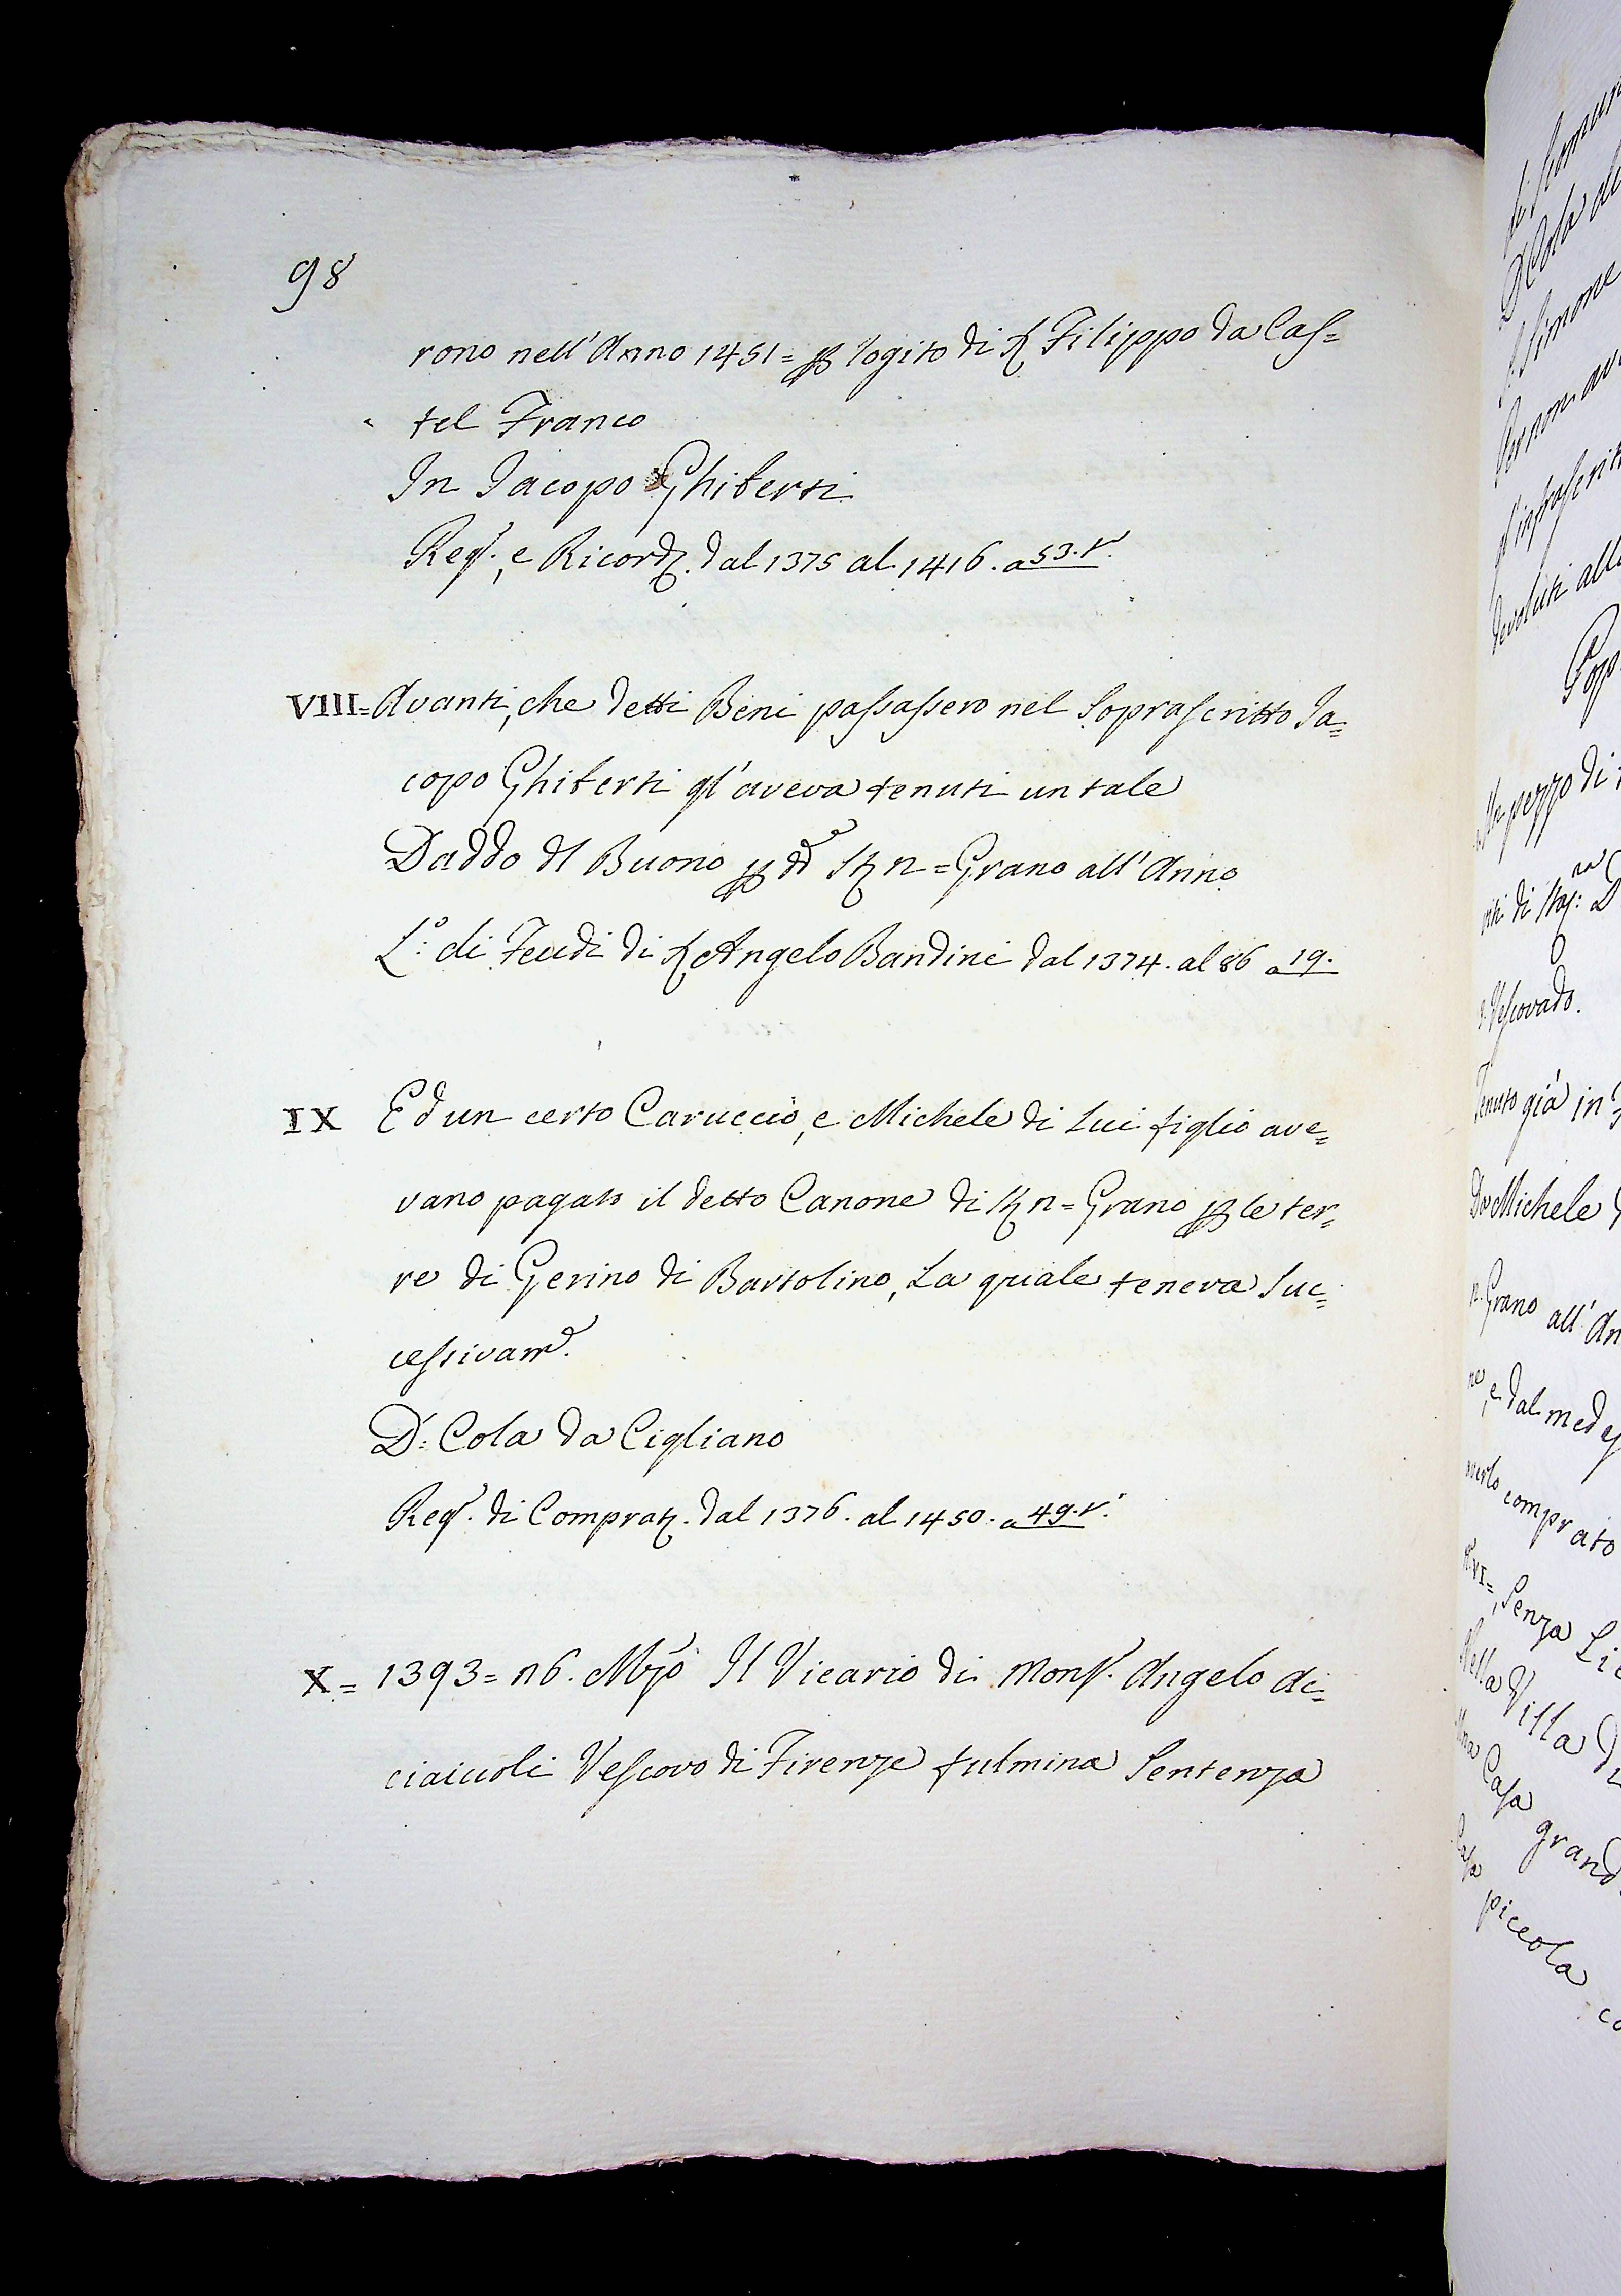 98
rono nell'Anno 1451= p logito di S Filippo da Cas=
tel Franco
In Jacopo Ghiberti
Reg. e Ricord. dal 1375 al 1416. a 53. v.
VIII= Avanti, che detti Beni passassero nel Soprascritto Ja=
copo Ghiberti gl'aveva tenuti un tale
Daddo dl Buono p dº St n= Grano all'Anno
Lº: di Feudi di S Angelo Bandini dal 1374. al 86 a 19.
IX Ed un certo Caruccio, e Michele di Lui figlio ave=
vano pagato il detto Canone di St n= Grano p le ter=
re di Gerino di Bartolino, La quale teneva Suc=
cessivamᵉ.
D: Cola da Cigliano
Reg. di Comprat. dal 1376. al 1450. a 49. v.
X= 1393= n6. Mgº Il Vicario di Mons. Angelo Ac=
ciaiuoli Vescovo di Firenze fulmina Sentenza
Simone
Per non
devoluti
pezzo di
na
Vescovado.
Tenuto già in
Michele
Grano all'An
ne, e dal medes
comprato
VI=, Senza Li
Nella Villa
Casa grand
piccola co